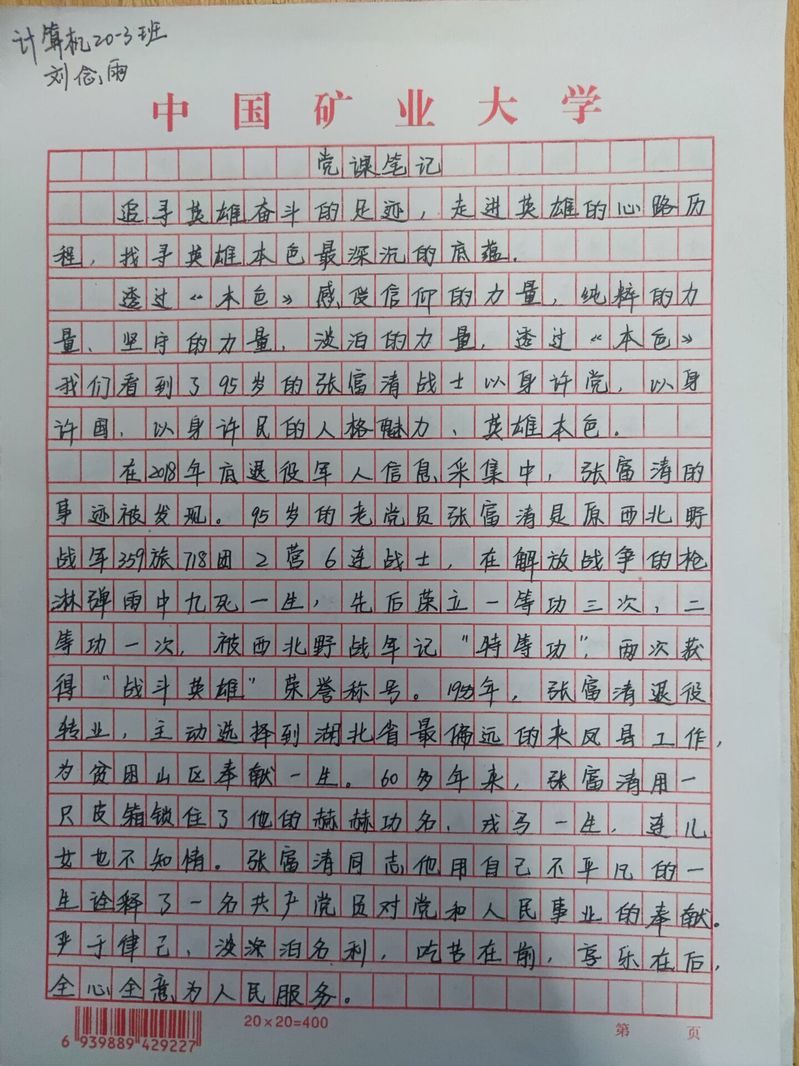 计算机20-3班
刘念雨
中国矿业大学
党课笔记
追寻英雄奋斗的足迹，走进英雄的心路历
程，找寻英雄本色最深沉的底蕴.
透过《本色》感受信仰的力量，纯粹的力
量、坚守的力量，淡泊的力量，透过《本色》
我们看到了95岁的张富清战士以身许党，以身
许国，以身许民的人格魅力、英雄本色.
在2018年底退役军人信息采集中，张富清的
事迹被发现。95岁的老党员张富清是原西北野
战军359旅718团2营6连战士，在解放战争的枪
淋弹雨中九死一生，先后荣立一等功三次，二
等功一次，被西北野战军记“特等功”，两次获
得“战斗英雄”荣誉称号。1955年，张富清退役
转业，主动选择到湖北省最偏远的来凤县工作，
为贫困山区奉献一生。60多年来，张富清用一
只皮箱锁住了他的赫赫功名，戎马一生，连儿
女也不知情。张富清同志他用自己不平凡的一
生诠释了一名共产党员对党和人民事业的奉献。
严于律己，淡深泊名利，吃苦在前，享乐在后，
全心全意为人民服务。
20×20=400
第 页
6 939889 429227